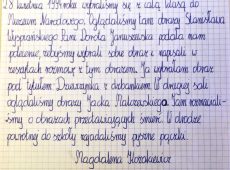 28 kwietnia 1994 roku wybraliśmy się z całą klasą do
Muzeum Narodowego. Oglądaliśmy tam obrazy Stanisława
Wyspiańskiego. Pani Dorota Januszewska podała nam
polecenie, żebyśmy wybrali sobie obraz i napisali w
zeszytach rozmowę z tym obrazem. Ja wybrałam obraz
pod tytułem Dziewczynka z dzbankiem. W drugiej sali
oglądaliśmy obrazy Jacka Malczewskiego. Tam rozmawiali-
śmy o obrazach przedstawiających śmierć. W drodze
powrotnej do szkoły zjadaliśmy pyszne pączki.
Magdalena